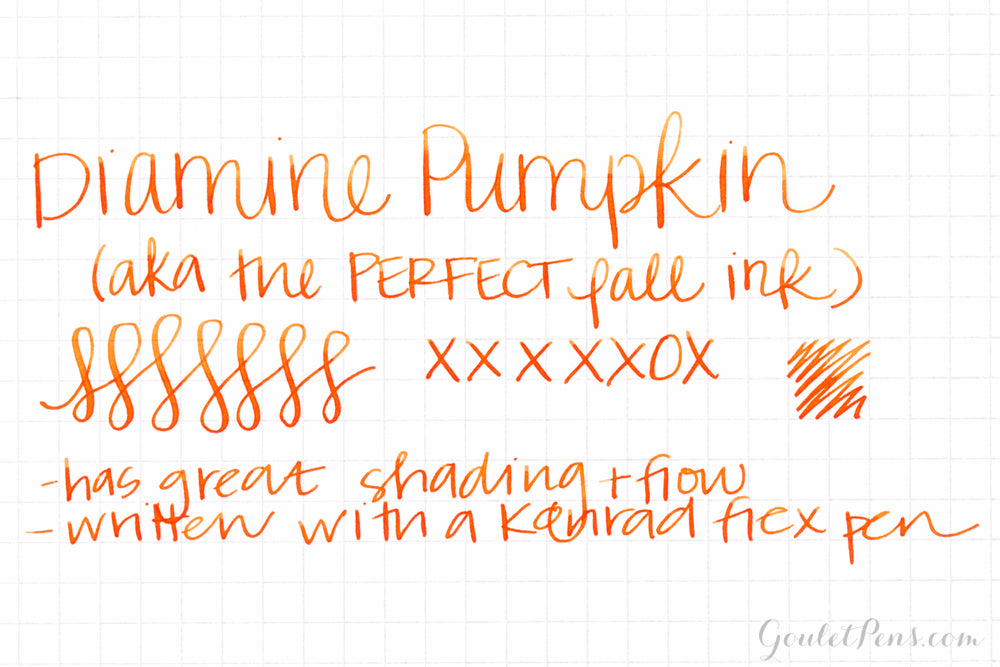 Diamine Pumpkin
(aka the PERFECT fall ink)
fffffff XXXXXOX
-has great shading + flow
-written with a Konrad flex pen
GouletPens.com